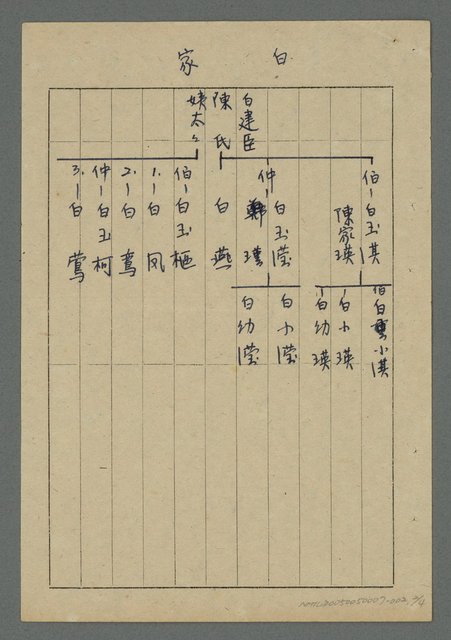 白家
白建臣
陳氏
姨太々
伯－白玉淇
陳家瑛
仲－白玉瀅
鄭瑾
白燕
伯－白玉栖
1.－白凤
2.－白鸾
仲－白玉柯
3.－白鶯
伯白小淇
白小瑛
白幼瑛
白小瀅
白幼瀅
NMTL20050050007-002 2/4